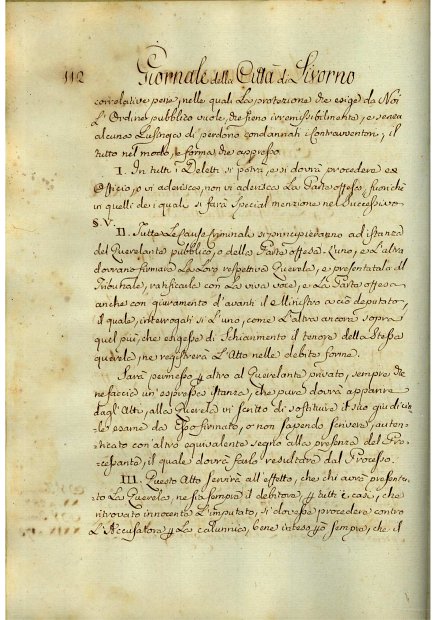 112 Giornale della Città di Livorno
correlative pene, nelle quali la protezione che esige da Noi
l'Ordine pubblico vuole, che sieno irremissibilmente, e senza
alcuna lusinga di perdono condannati i Contravventori, il
tutto nel modo, e forma che appresso.
I. In tutti i Delitti si potrà, e si dovrà procedere ex
Officio, o vi aderisca, o non vi aderisca la Parte offesa, fuorichè
in quelli de i quali si farà special menzione nel successivo
§. V.
II. Tutte le Cause Criminali si principieranno ad istanza
del Querelante pubblico, o della Parte offesa. L'uno, e l'altra
dovranno firmare la loro respettiva Querela, e presentatala al
Tribunale, ratificarla con la viva voce, e la Parte offesa
anche con giuramento d'avanti il Ministro a ciò deputato,
il quale, interrogati sì l'uno, come l'altra ancora sopra
quel più, che esigesse di schiarimento il tenore della stessa
querela, ne registrerà l'Atto nelle debite forme.
Sarà permesso però al Querelante privato, sempre che
ne faccia un'espressa istanza, che pure dovrà apparire
dagl'Atti, alla Querela in scritto di sostituire il suo giudicia-
le esame da Esso firmato, o non sapendo scrivere, auten-
ticato con altro equivalente segno alla presenza del Pro-
cessante, il quale dovrà farlo resultare dal Processo.
III. Questo Atto servirà all'effetto, che chi avrà presenta-
to la Querela, ne sia sempre il debitore, per tutti i casi, che
ritrovato innocente l'imputato, si dovesse procedere contro
l'Accusatore per la calunnia, bene inteso però sempre, che il